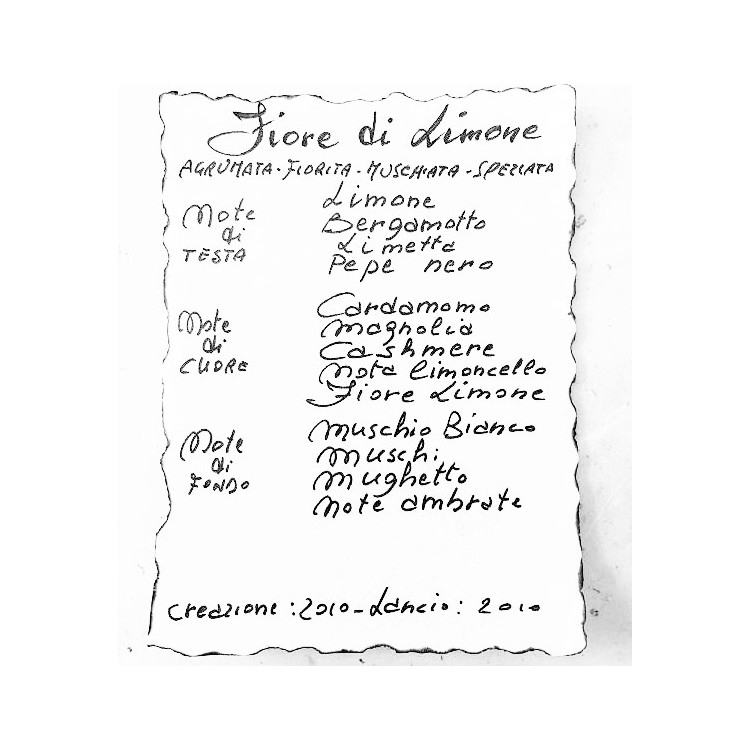 Fiore di Limone
AGRUMATA - FIORITA - MUSCHIATA - SPEZIATA
Note di TESTA
Limone
Bergamotto
Limetta
Pepe nero
Note di CUORE
Cardamomo
Magnolia
Cashmere
Nota limoncello
Fiore Limone
Note di FONDO
Muschio Bianco
Muschi
Mughetto
Note ambrate
Creazione : 2010 - Lancio : 2010